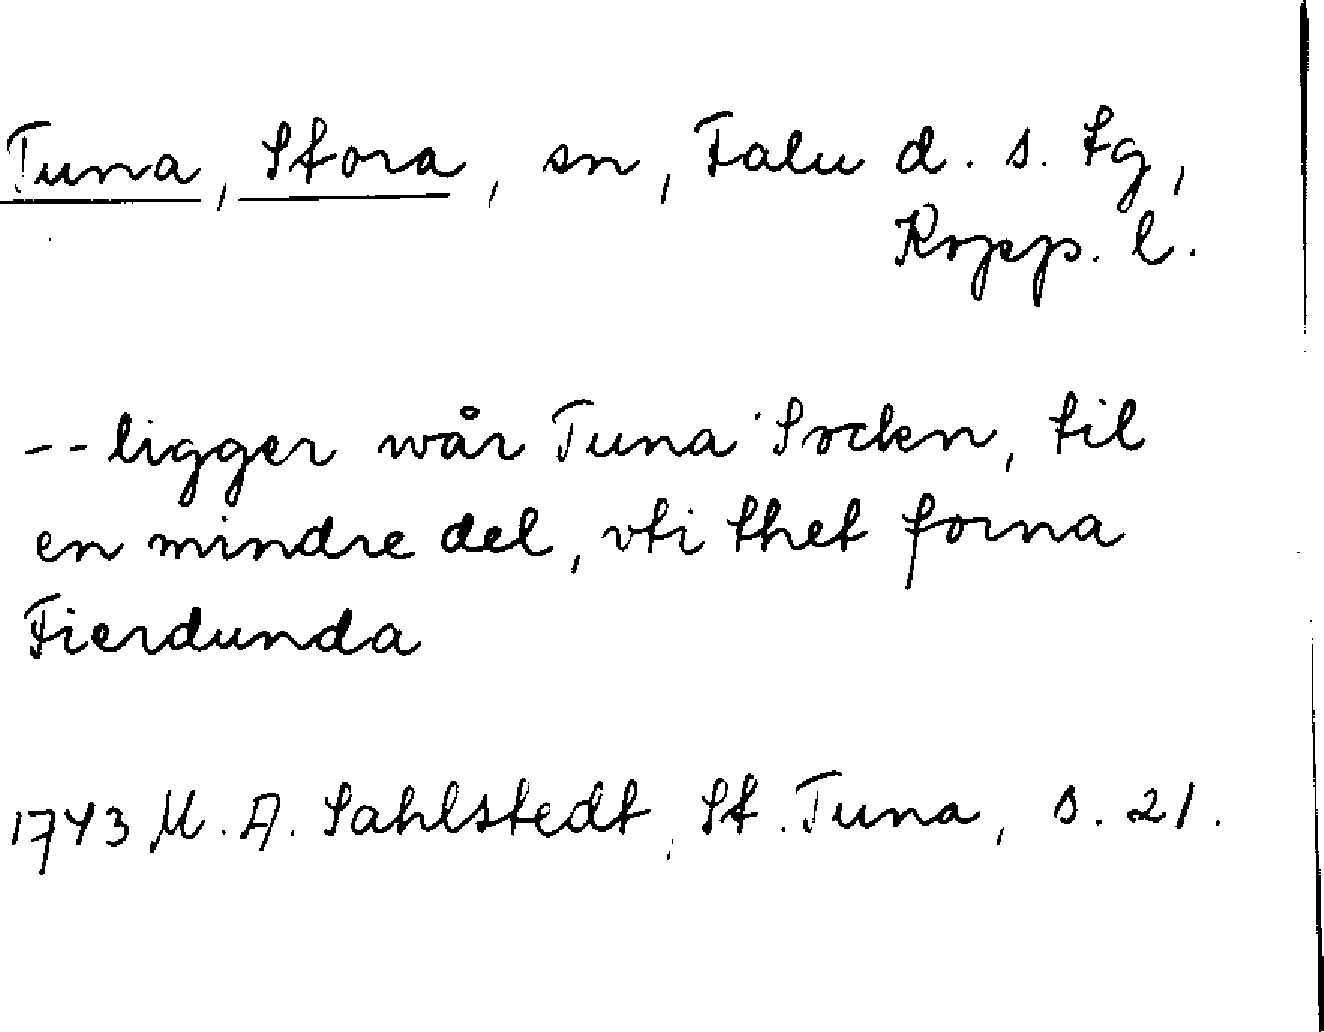 Tuna, Stora, sn, Falu d. s. tg,
Kopp. l.
-- ligger wår Tuna Sockn, til
en mindre del, vti thet forna
Fierdunda
1743 M. A. Sahlstedt, St. Tuna, s. 21.